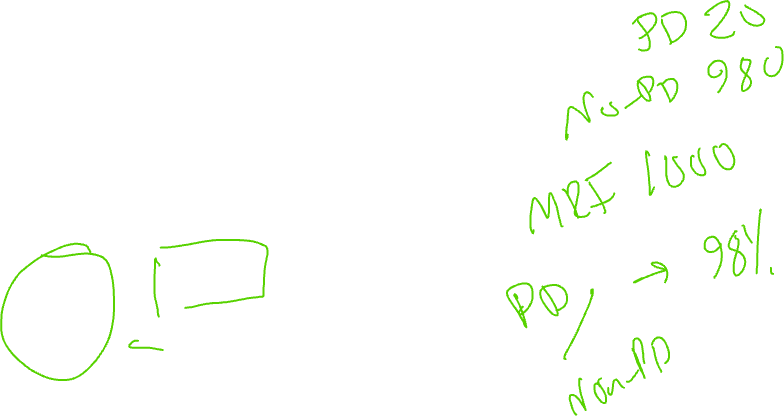 PD 20
No-PD 980
MRI 1000
PD / Non-PD → 98%